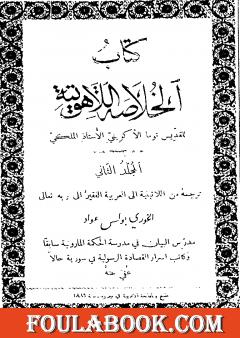 كتاب
الخلاصة اللاهوتية
للقديس توما الاكويني الاستاذ الملكي
المجلد الثاني
ترجمه من اللاتينية الى العربية الفقير الى ربه تعالى
الخوري بولس عواد
مدرس البيان في مدرسة الحكمة المارونية سابقا
وكاتب اسرار القصادة الرسولية في سورية حالا
عفي عنه
طبع في المطبعة الادبية في بيروت سنة
FOULABOOK.COM